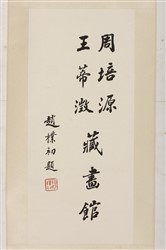 周培源
王蒂澂
藏畫館
趙樸初題